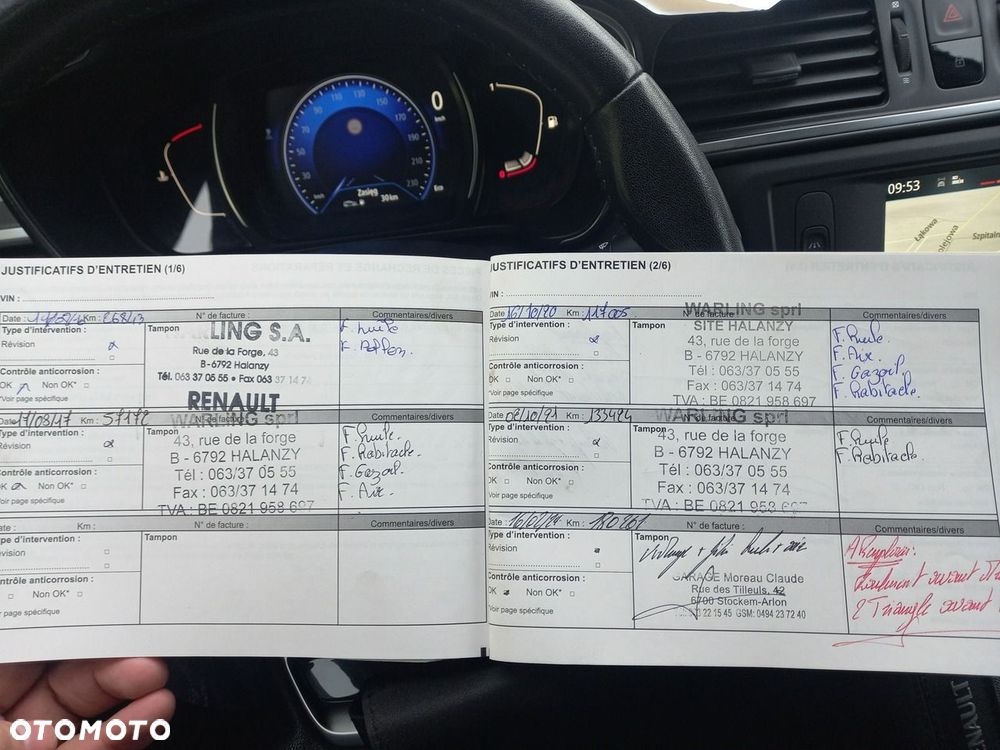 30
50
70
90
110
130
150
170
190
210
230
km/h
0
km/h
Zasięg
30 km
1
0
09:53
Łąkowa
Szpitaln
JUSTIFICATIFS D'ENTRETIEN (1/6)
VIN :
Date : Km : 26813
N° de facture :
Commentaires/divers
Type d'intervention :
Révision
Tampon
LING S.A.
Rue de la Forge, 43
B-6792 Halanzy
Tél. 063 37 05 55 • Fax 063 37 14 74
RENAULT
F. Huile
F. Pollen.
Contrôle anticorrosion :
OK Non OK* □
*Voir page spécifique
Date 17/08/17 Km : 57172
N° de facture :
Commentaires/divers
Type d'intervention :
Révision
Tampon
WARLING sprl
43, rue de la forge
B - 6792 HALANZY
Tél : 063/37 05 55
Fax : 063/37 14 74
TVA : BE 0821 958 697
F. Huile.
F. Habitacle.
F. Gazoil.
F. Air.
Contrôle anticorrosion :
OK Non OK* □
Voir page spécifique
ate : Km :
N° de facture :
Commentaires/divers
ype d'intervention :
évision □
Tampon
ontrôle anticorrosion :
□ Non OK* □
r page spécifique
JUSTIFICATIFS D'ENTRETIEN (2/6)
VIN :
Date 16/10/20 Km : 117005
N° de facture :
Commentaires/divers
Type d'intervention :
Révision
Tampon
WARLING sprl
SITE HALANZY
43, rue de la forge
B - 6792 HALANZY
Tél : 063/37 05 55
Fax : 063/37 14 74
TVA : BE 0821 958 697
F. Huile.
F. Air.
F. Gazoil.
F. Habitacle.
Contrôle anticorrosion :
OK □ Non OK* □
*Voir page spécifique
Date : /10/21 Km : 133424
N° de facture :
Commentaires/divers
Type d'intervention :
Révision
Tampon
WARLING sprl
43, rue de la forge
B - 6792 HALANZY
Tél : 063/37 05 55
Fax : 063/37 14 74
TVA : BE 0821 958
F. Huile
F. Habitacle.
Contrôle anticorrosion :
OK □ Non OK* □
Voir page spécifique
Date : 16/02/24 Km : 180261
N° de facture :
Commentaires/divers
Type d'intervention :
Révision
Tampon
Vidange + filtre huile + air
GARAGE Moreau Claude
Rue des Tilleuls, 42
6700 Stockem-Arlon
22 15 45 GSM: 0494 23 72 40
A Remplacer:
Roulement avant
2 Triangle avant
ontrôle anticorrosion :
OK Non OK* □
oir page spécifique
RENAULT
OTOMOTO